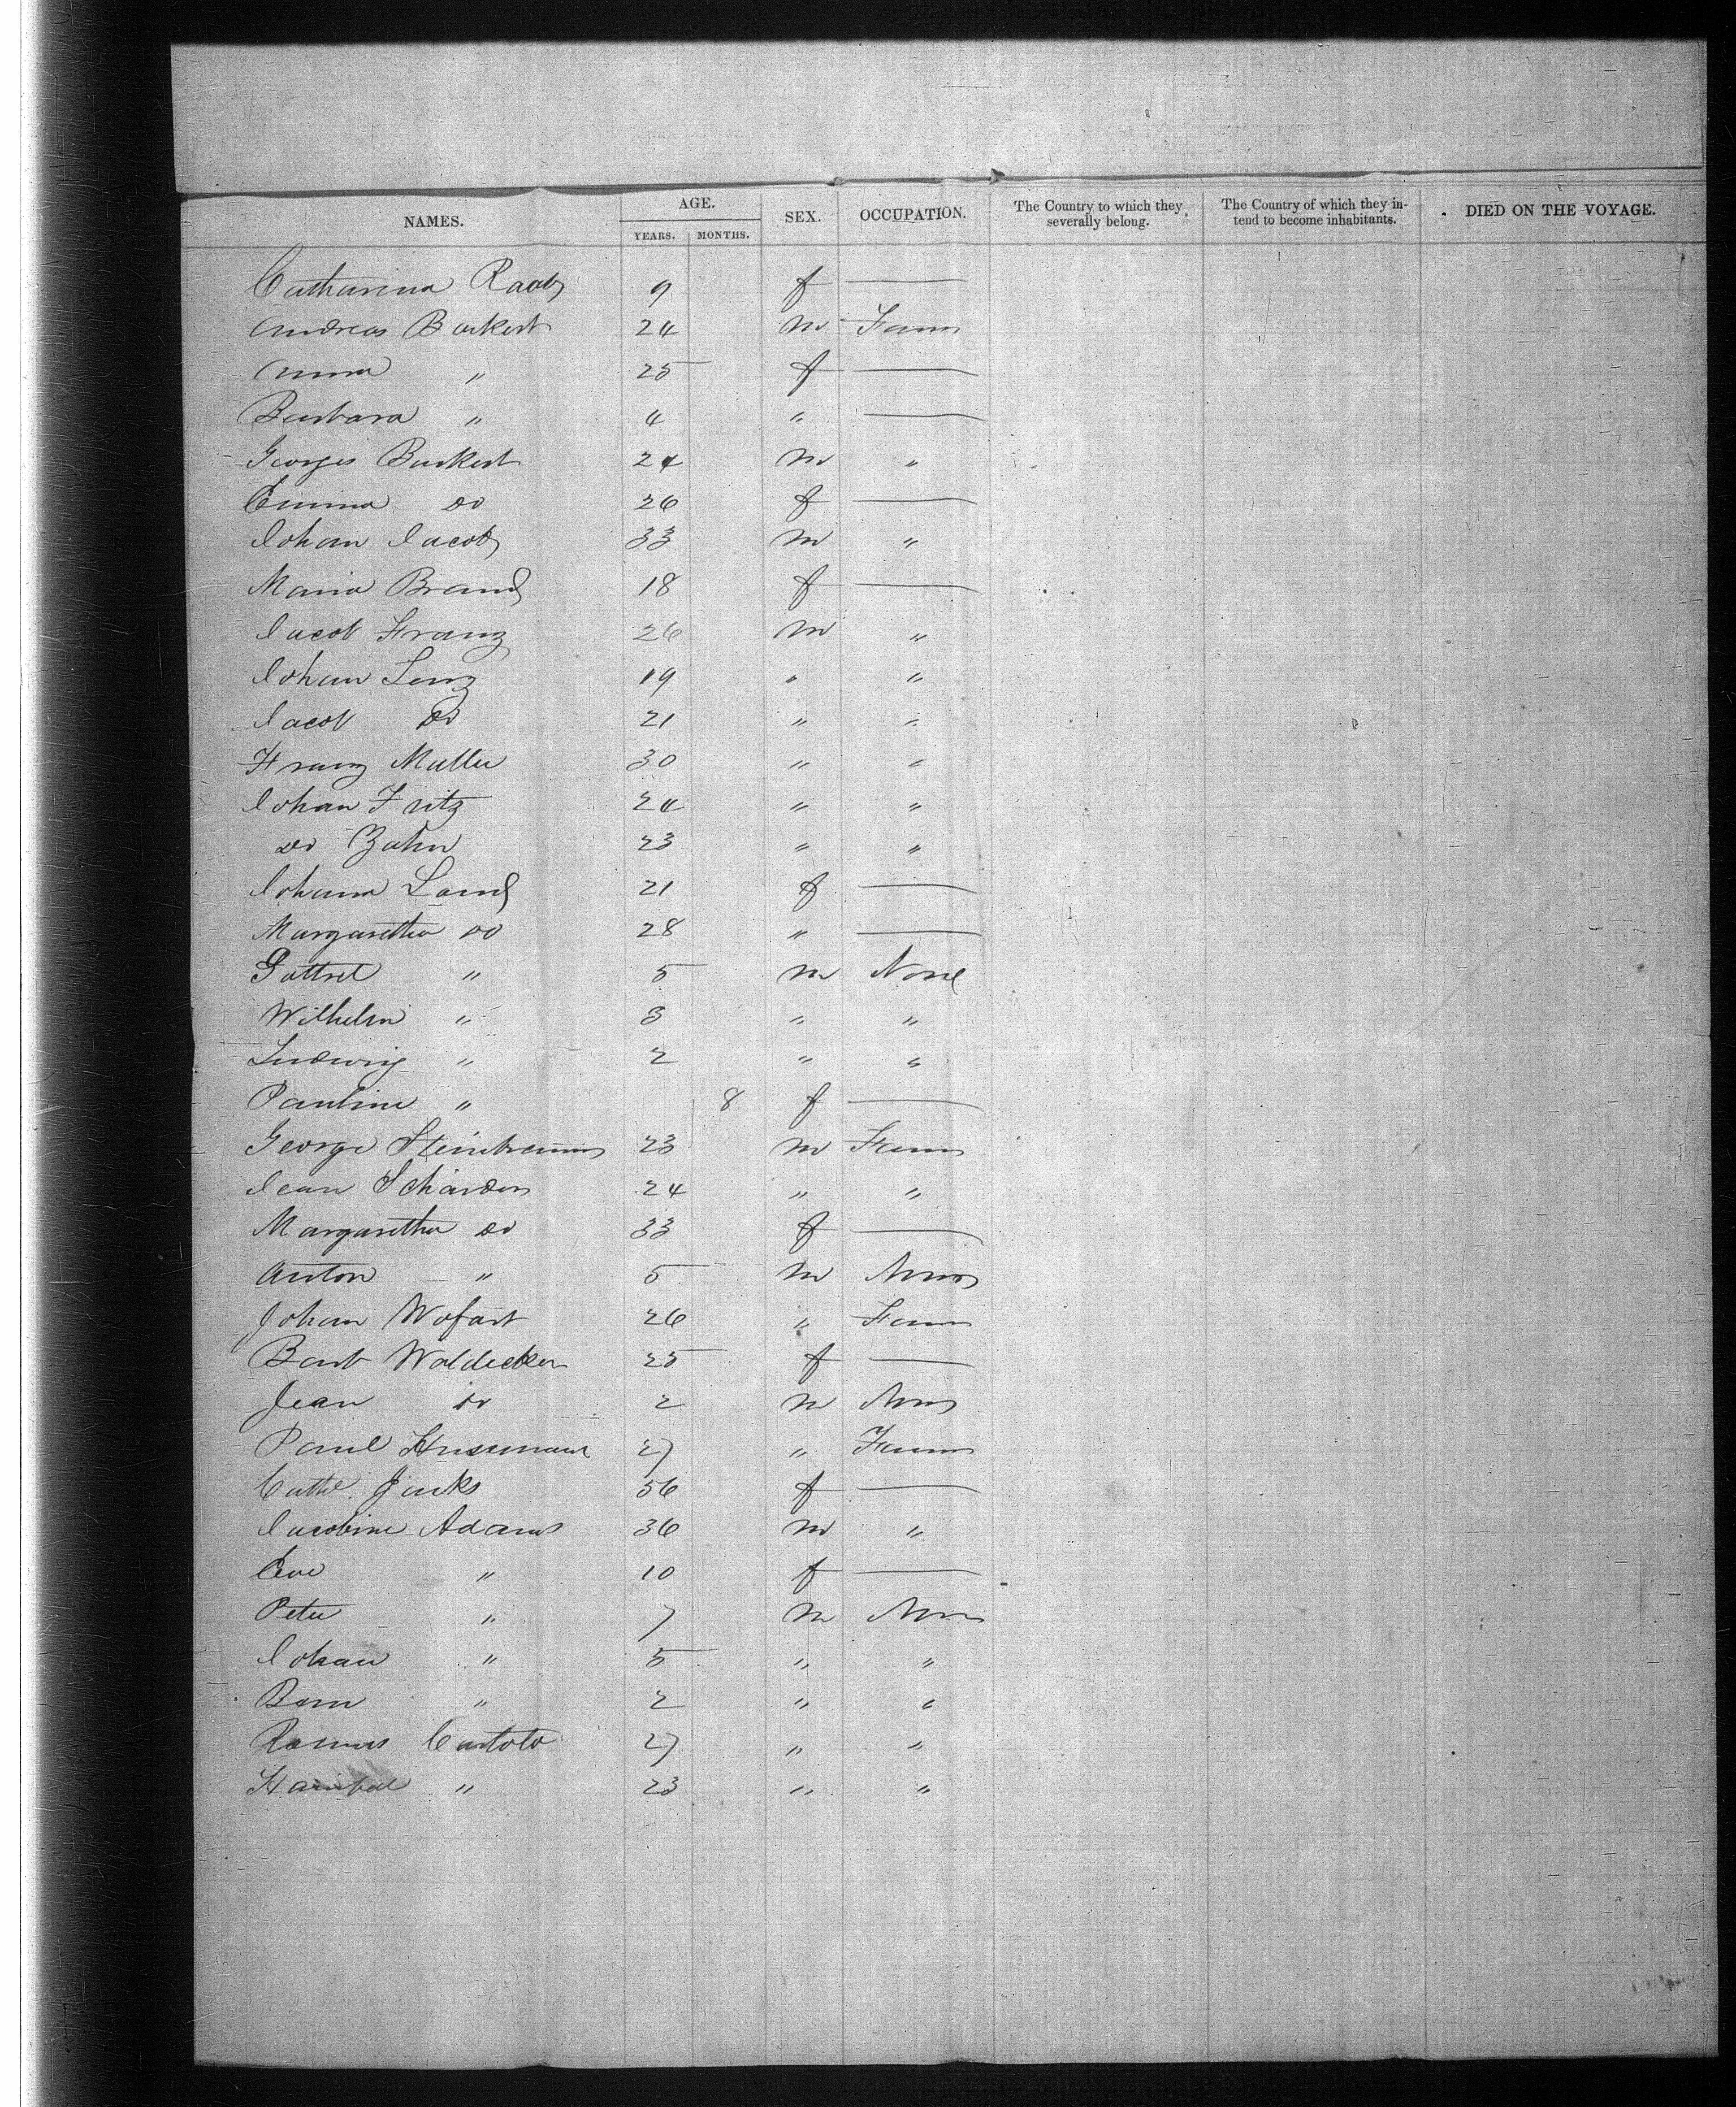 NAMES. AGE. SEX. OCCUPATION. The Country to which they severally belong. The Country of which they intend to become inhabitants. DIED ON THE VOYAGE.
YEARS. MONTHS.
Catharina Raab 9 f —
Andreas Burkert 24 m Farm
Anna " 25 f —
Barbara " 4 " —
Georges Burkert 24 m "
Emma do 26 f —
Johan Jacob 33 m "
Maria Brand 18 f —
Jacob Franz 26 m "
Johan Lenz 19 " "
Jacob do 21 " "
Franz Muller 30 " "
Johan Fritz 24 " "
do Zahn 23 " "
Johann Land 21 f —
Margaretha do 28 " —
Gottrel " 5 m None
Wilhelm " 3 " "
Ludwig " 2 " "
Pauline " 8 f —
George 23 m Farm
Jean Schardon 24 " "
Margaretha do 33 f —
Anton " 5 m None
Johan Wofart 26 " Farm
Barb Waldecker 25 f —
Jean do 2 m None
Paul Husmann 27 " Farm
Cathe. Jinks 56 f —
Jacobine Adams 36 m "
Eve " 10 f —
Peter " 7 m None
Johan " 5 " "
" 2 " "
27 " "
" 23 " "